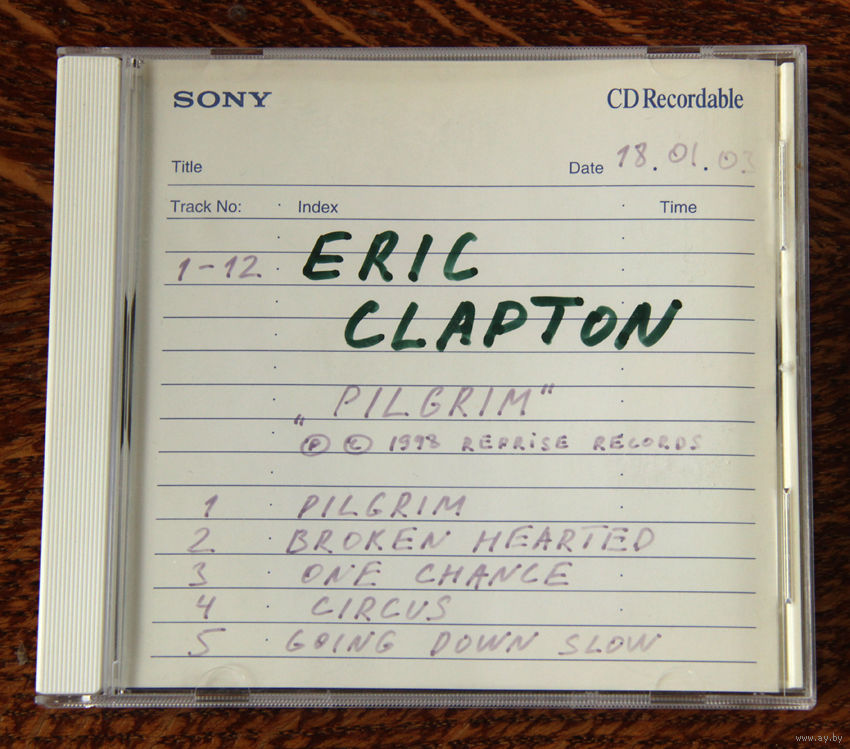 SONY CD Recordable
Title Date 18.01.03
Track No: Index Time
1-12 ERIC
CLAPTON
„PILGRIM"
Ⓟ © 1998 REPRISE RECORDS
1 PILGRIM
2 BROKEN HEARTED
3 ONE CHANCE
4 CIRCUS
5 GOING DOWN SLOW
www.ay.by